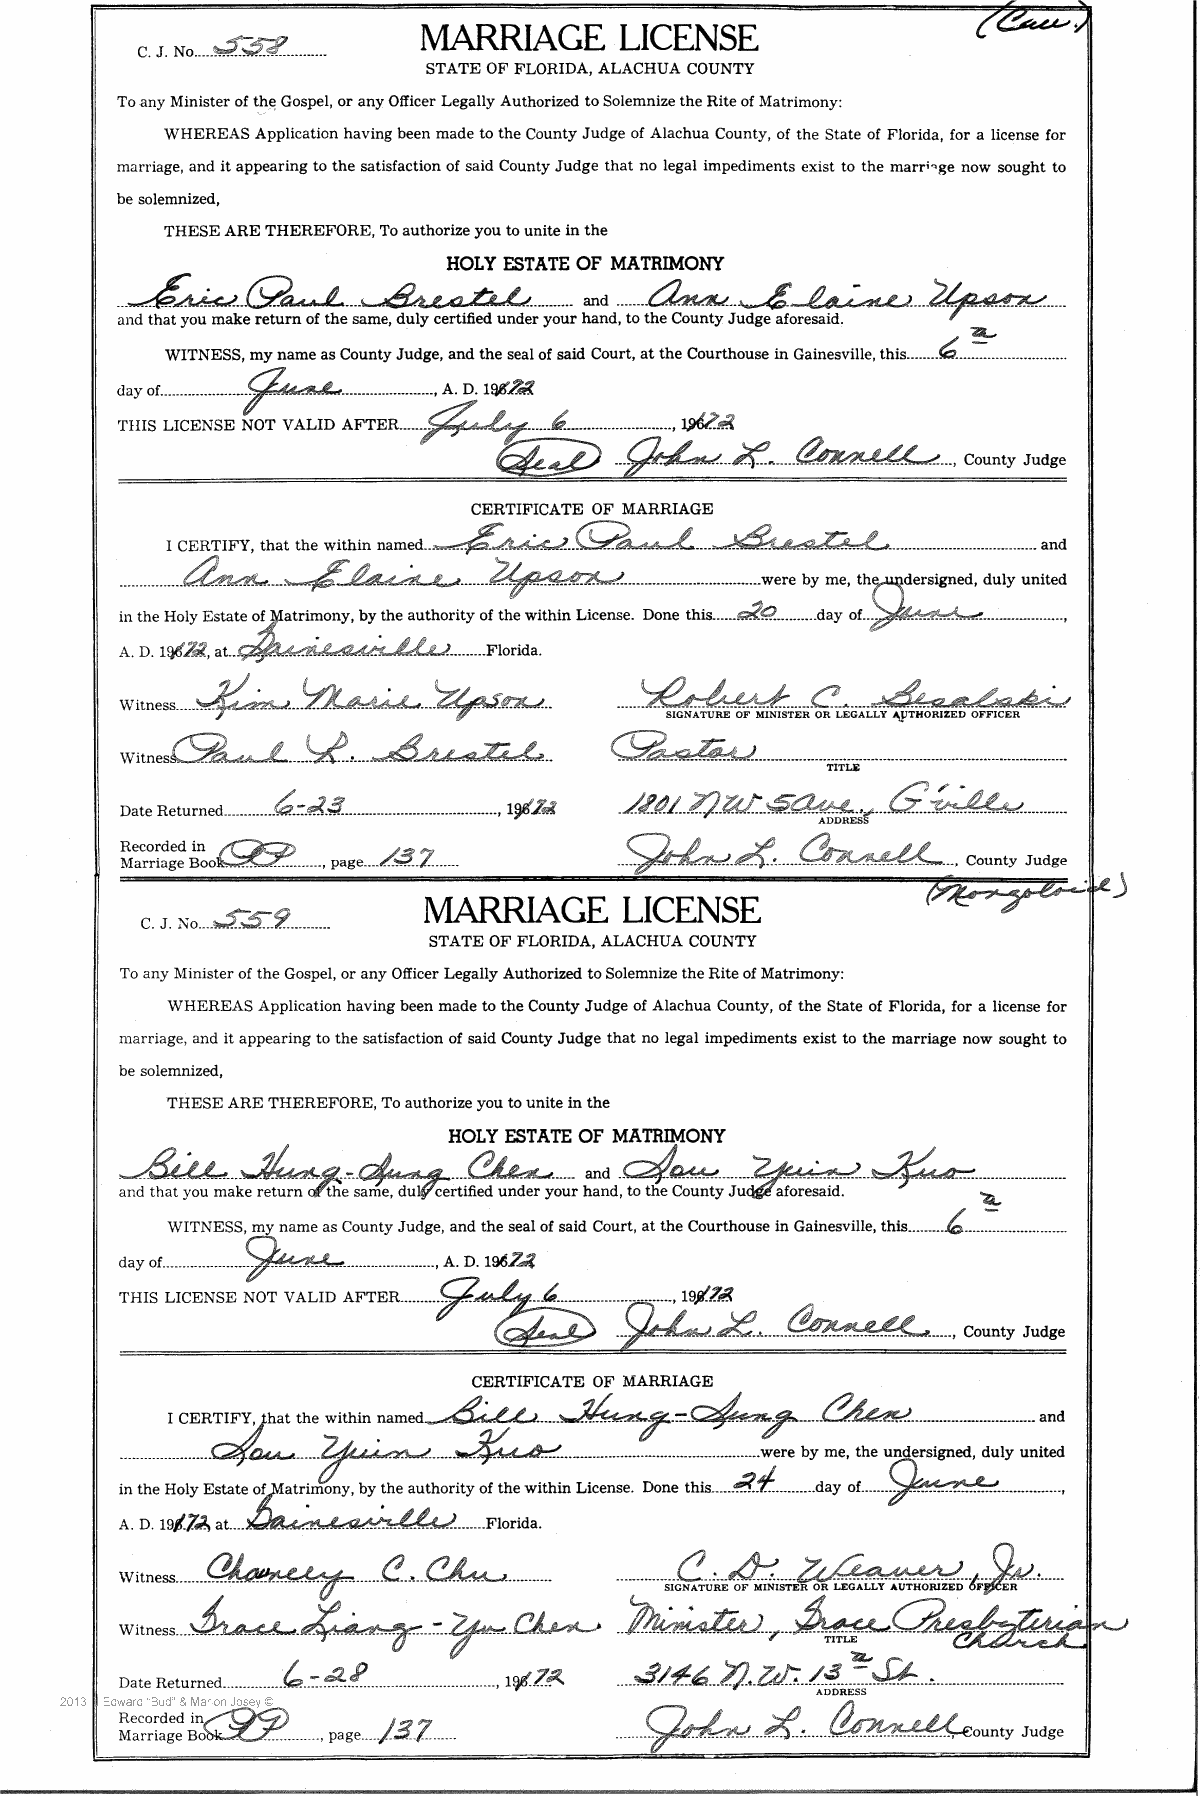 (Cau.)
C. J. No. 558
MARRIAGE LICENSE
STATE OF FLORIDA, ALACHUA COUNTY
To any Minister of the Gospel, or any Officer Legally Authorized to Solemnize the Rite of Matrimony:
WHEREAS Application having been made to the County Judge of Alachua County, of the State of Florida, for a license for
marriage, and it appearing to the satisfaction of said County Judge that no legal impediments exist to the marriage now sought to
be solemnized,
THESE ARE THEREFORE, To authorize you to unite in the
HOLY ESTATE OF MATRIMONY
Eric Paul Brestel and Ann Elaine Upson
and that you make return of the same, duly certified under your hand, to the County Judge aforesaid.
WITNESS, my name as County Judge, and the seal of said Court, at the Courthouse in Gainesville, this 6th
day of June, A. D. 1972
THIS LICENSE NOT VALID AFTER July 6, 1972
(Seal) John L. Connell, County Judge
CERTIFICATE OF MARRIAGE
I CERTIFY, that the within named Eric Paul Brestel and
Ann Elaine Upson were by me, the undersigned, duly united
in the Holy Estate of Matrimony, by the authority of the within License. Done this 20 day of June,
A. D. 1972, at Gainesville Florida.
Witness Kim Marie Upson Robert C. Besalski
SIGNATURE OF MINISTER OR LEGALLY AUTHORIZED OFFICER
Witness Paul L. Brestel Pastor
TITLE
Date Returned 6-23, 1972 1801 NW 5 Ave., G'ville
ADDRESS
Recorded in
Marriage Book PP, page 137 John L. Connell, County Judge
(Mongoloid)
C. J. No. 559
MARRIAGE LICENSE
STATE OF FLORIDA, ALACHUA COUNTY
To any Minister of the Gospel, or any Officer Legally Authorized to Solemnize the Rite of Matrimony:
WHEREAS Application having been made to the County Judge of Alachua County, of the State of Florida, for a license for
marriage, and it appearing to the satisfaction of said County Judge that no legal impediments exist to the marriage now sought to
be solemnized,
THESE ARE THEREFORE, To authorize you to unite in the
HOLY ESTATE OF MATRIMONY
Bill Hung-Sung Chen and Sou Yuin Kuo
and that you make return of the same, duly certified under your hand, to the County Judge aforesaid.
WITNESS, my name as County Judge, and the seal of said Court, at the Courthouse in Gainesville, this 6th
day of June, A. D. 1972
THIS LICENSE NOT VALID AFTER July 6, 1972
(Seal) John L. Connell, County Judge
CERTIFICATE OF MARRIAGE
I CERTIFY, that the within named Bill Hung-Sung Chen and
Sou Yuin Kuo were by me, the undersigned, duly united
in the Holy Estate of Matrimony, by the authority of the within License. Done this 24 day of June,
A. D. 1972, at Gainesville Florida.
Witness Chauncey C. Chu C. D. Weaver, Jr.
SIGNATURE OF MINISTER OR LEGALLY AUTHORIZED OFFICER
Witness Grace Liang-Yu Chen Minister, Grace Presbyterian
TITLE Church
Date Returned 6-28, 1972 3146 N.W. 13th St.
ADDRESS
2013 Edward "Bud" & Marion Josey ©
Recorded in
Marriage Book PP, page 137 John L. Connell, County Judge